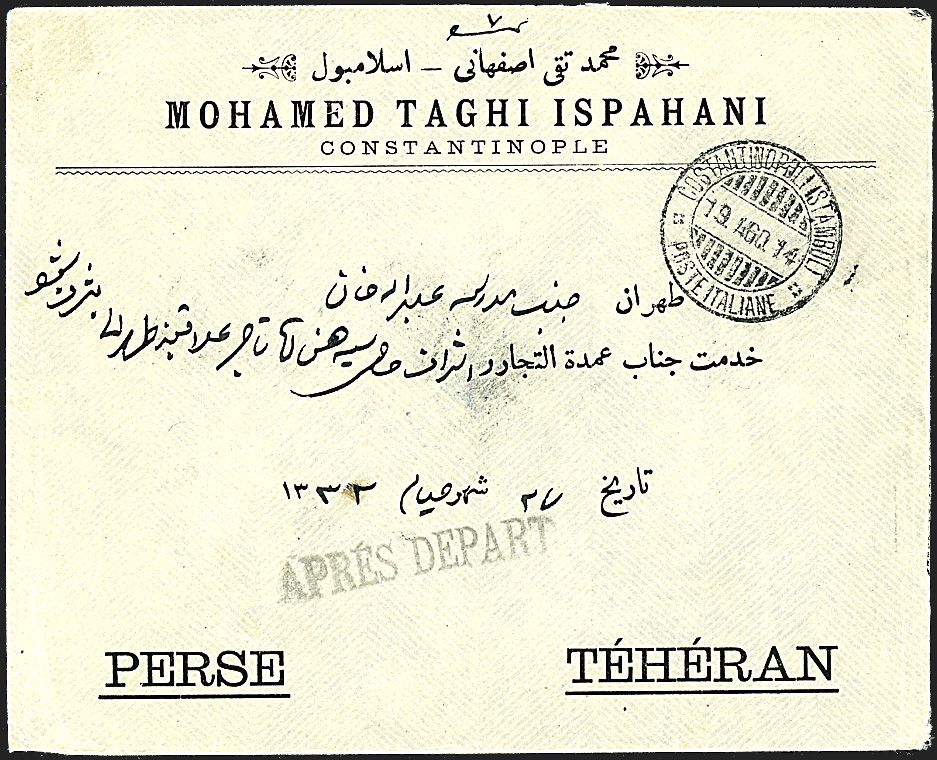 ۷
محمد تقی اصفهانی — اسلامبول
MOHAMED TAGHI ISPAHANI
CONSTANTINOPLE
COSTANTINOPOLI ISTAMBUL
19. AGO. 14
POSTE ITALIANE
طهران جنب مدرسه عبدالله خان
خدمت جناب عمدة التجار و اشراف حاجی سید تاجر علاقبند طهرانی مشرف شود
تاریخ ۲۷ شهر صیام ۱۳۳۲
APRÉS DEPART
PERSE TÉHÉRAN